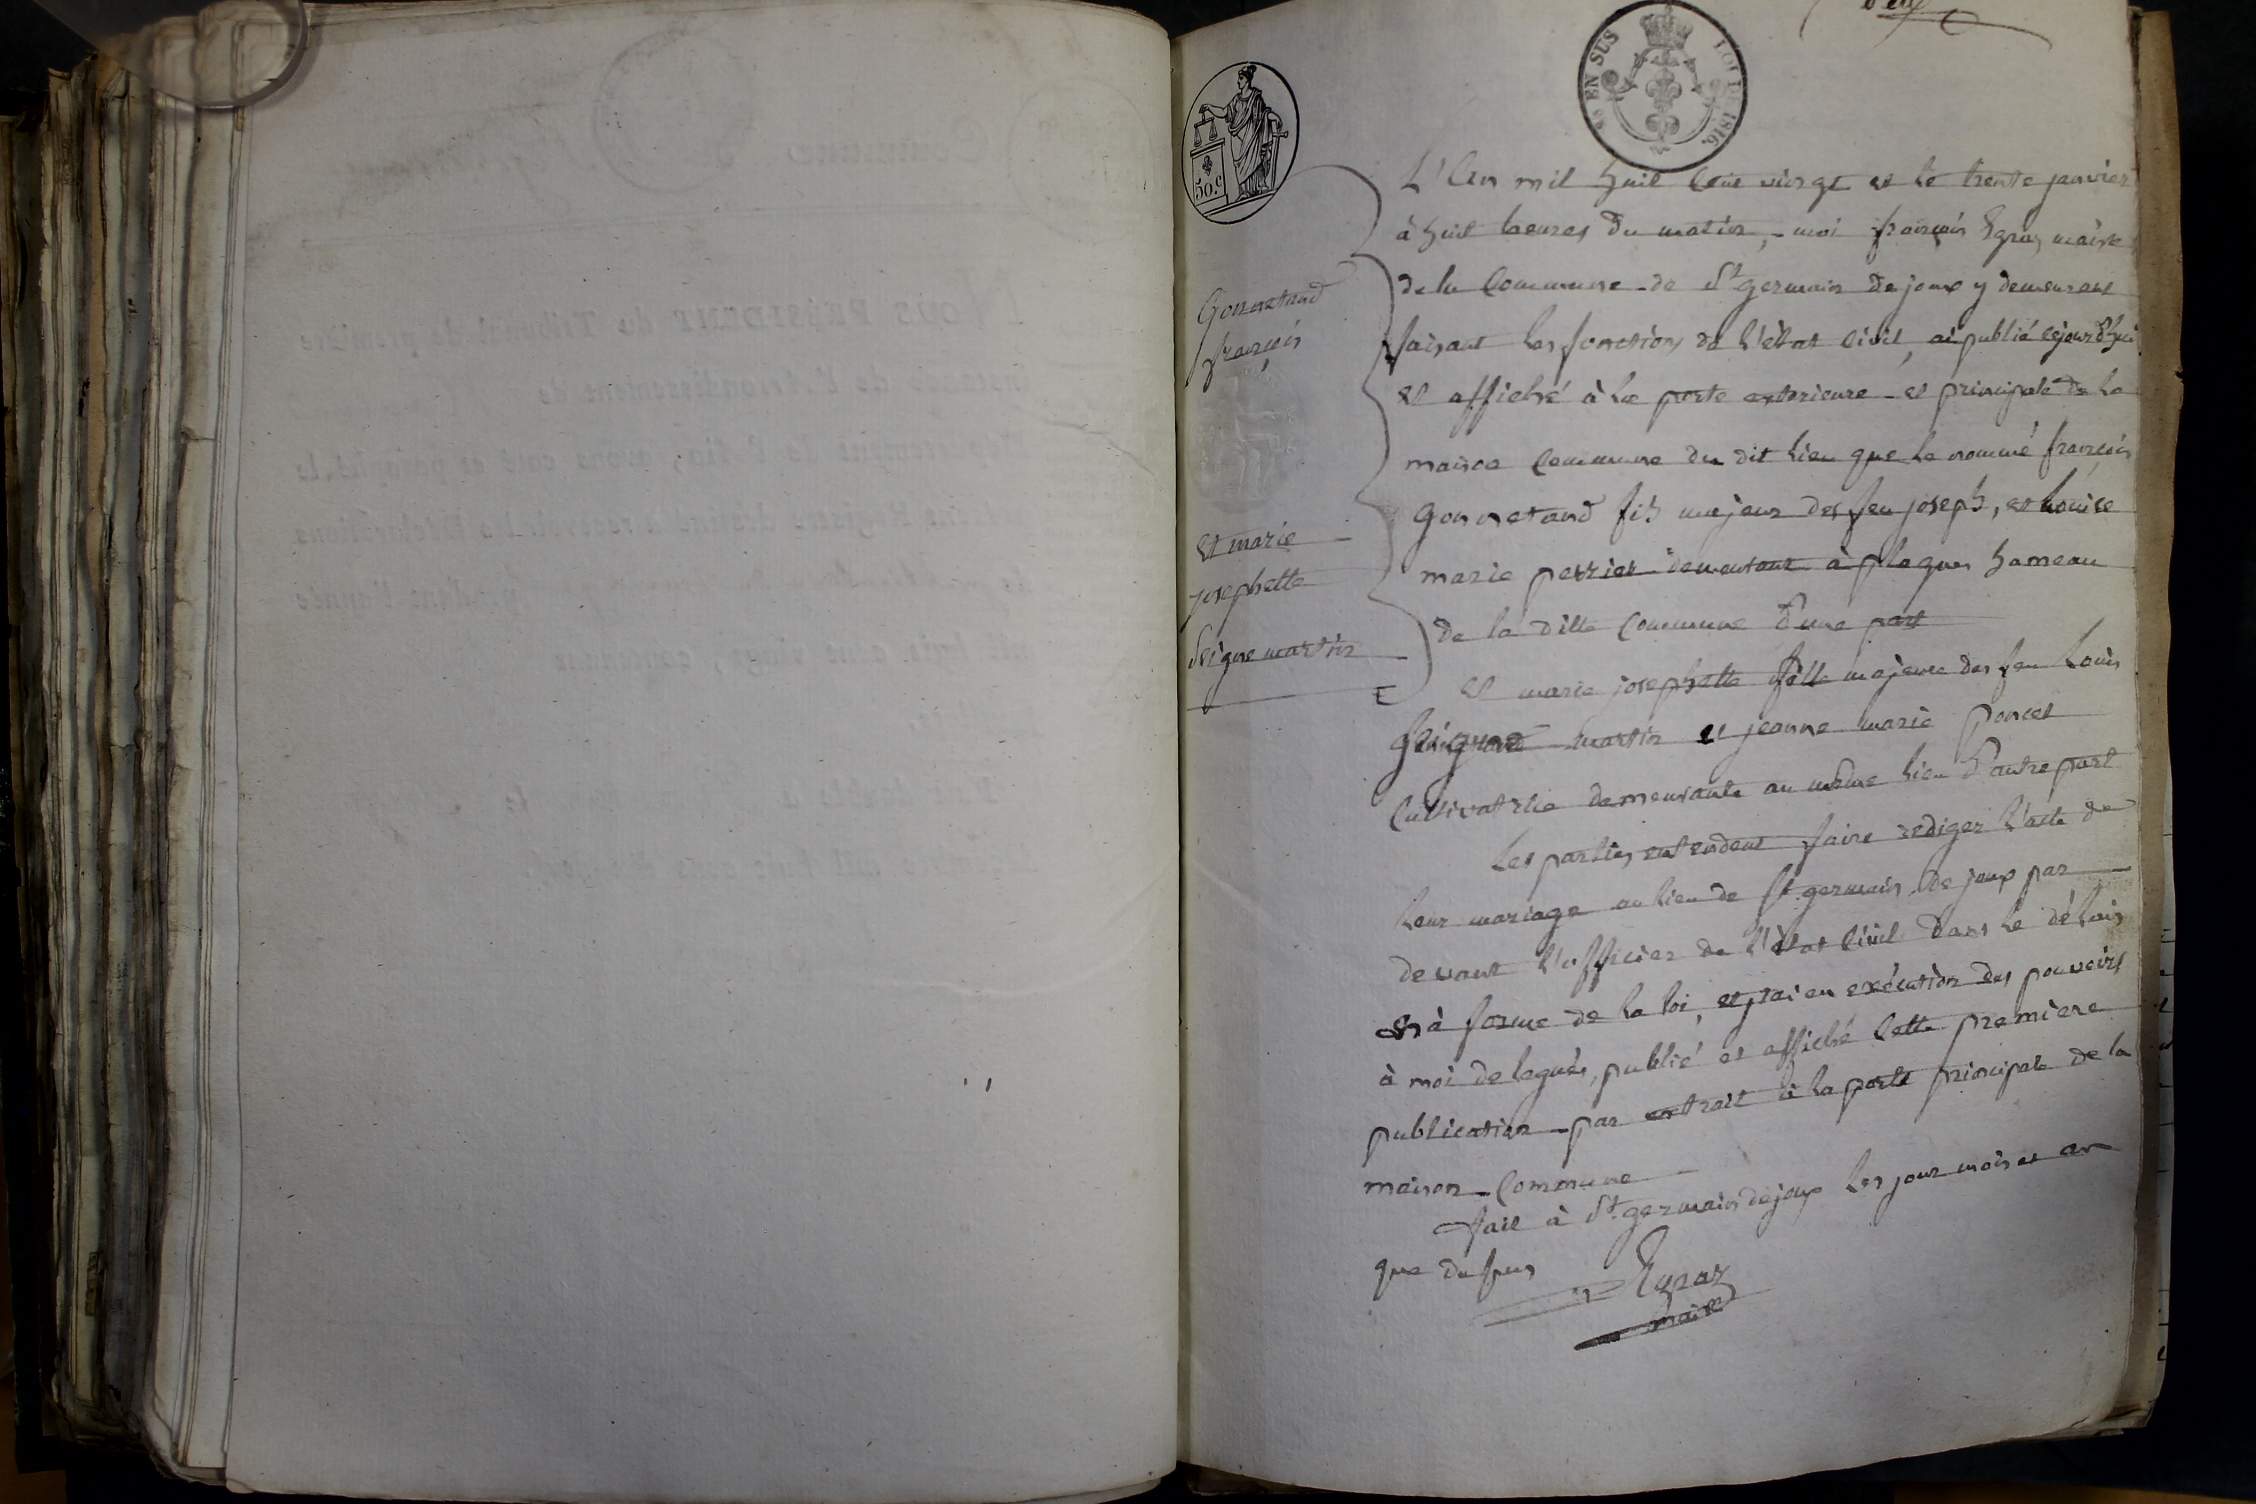 deux
EN SUS
LOI DE 1816.
50.c
L'An mil huit cent vingt et le trente janvier
à huit heures du matin, - moi françois Egraz maire
de la Commune de St germain de joux y demeurant
faisant les fonctions de l'état Civil, ai publié cejourd'hui
et affiché à la porte exterieure et principale de la
maison Commune du dit lieu que le nommé françois
gonnetand fils majeur des feu joseph, et Louise
marie perrier demeurant à plagnes hameau
de la ditte Commune d'une part
et marie josephette fille majeure des feu Louis
Seigne martin et jeanne marie poncet
Cultivatrice demeurante au même lieu d'autre part
Les parties entendent faire rediger l'acte de
leur mariage au lieu de St. germain de joux par
devant l'officier de l'état Civil dans le délais
et à forme de la loi, et j'ai en exécution des pouvoirs
à moi delegués, publié et affiché Cette premiere
publication par extrait à la porte principale de la
maison Commune
fait à St. germain de joux les jour mois et an
que dessus
Egraz
maire
Gonnetand
françois
et marie
josephette
Seigne martin
NOUS PRÉSIDENT du Tribunal de première
instance de l'Arrondissement de
Département de l'Ain, avons coté et paraphé le